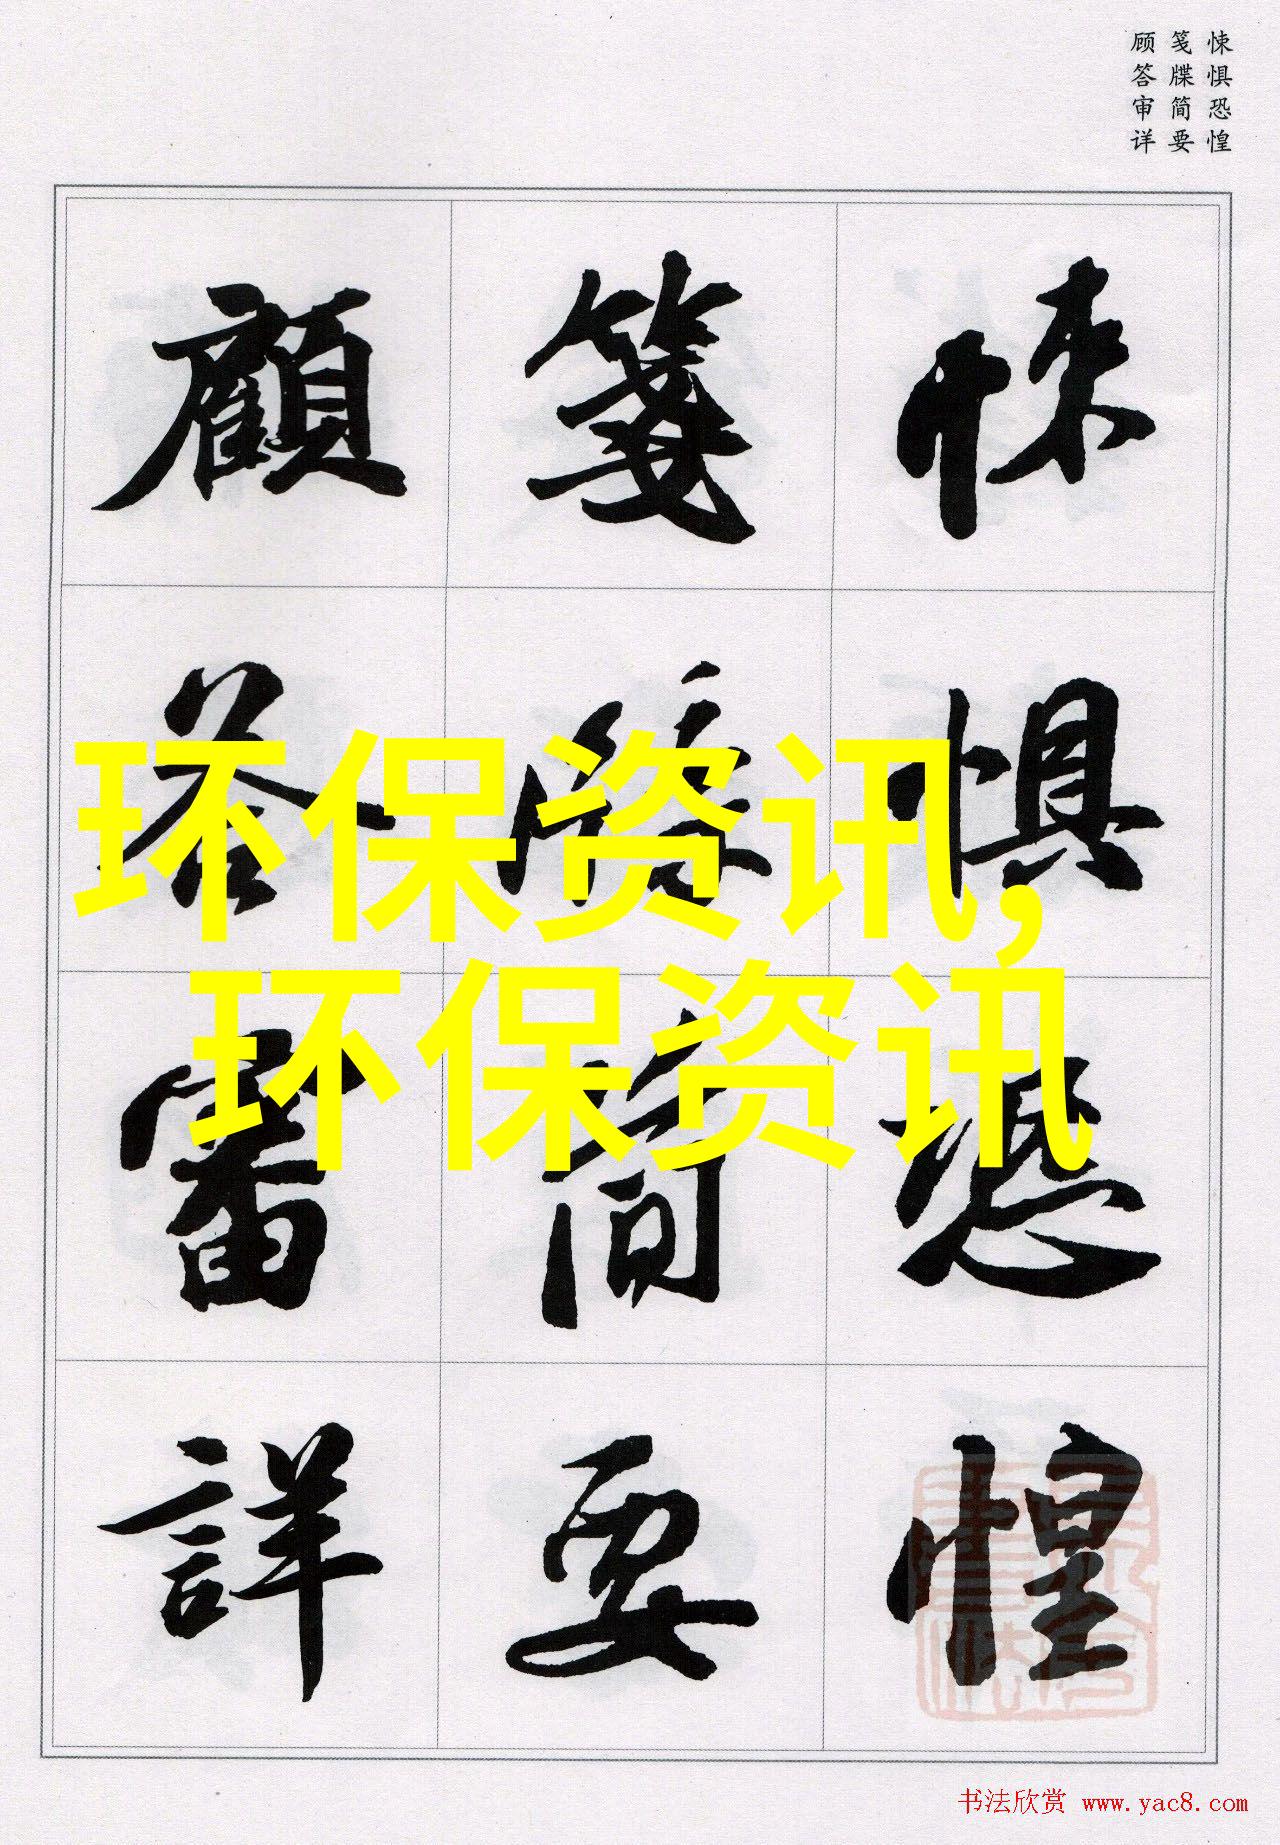 悚惧恐惶
笺牒简要
顾答审详
悚惧恐惶
笺牒简要
顧答審詳
环保资讯,
环保资讯
书法欣赏 www.yac8.com